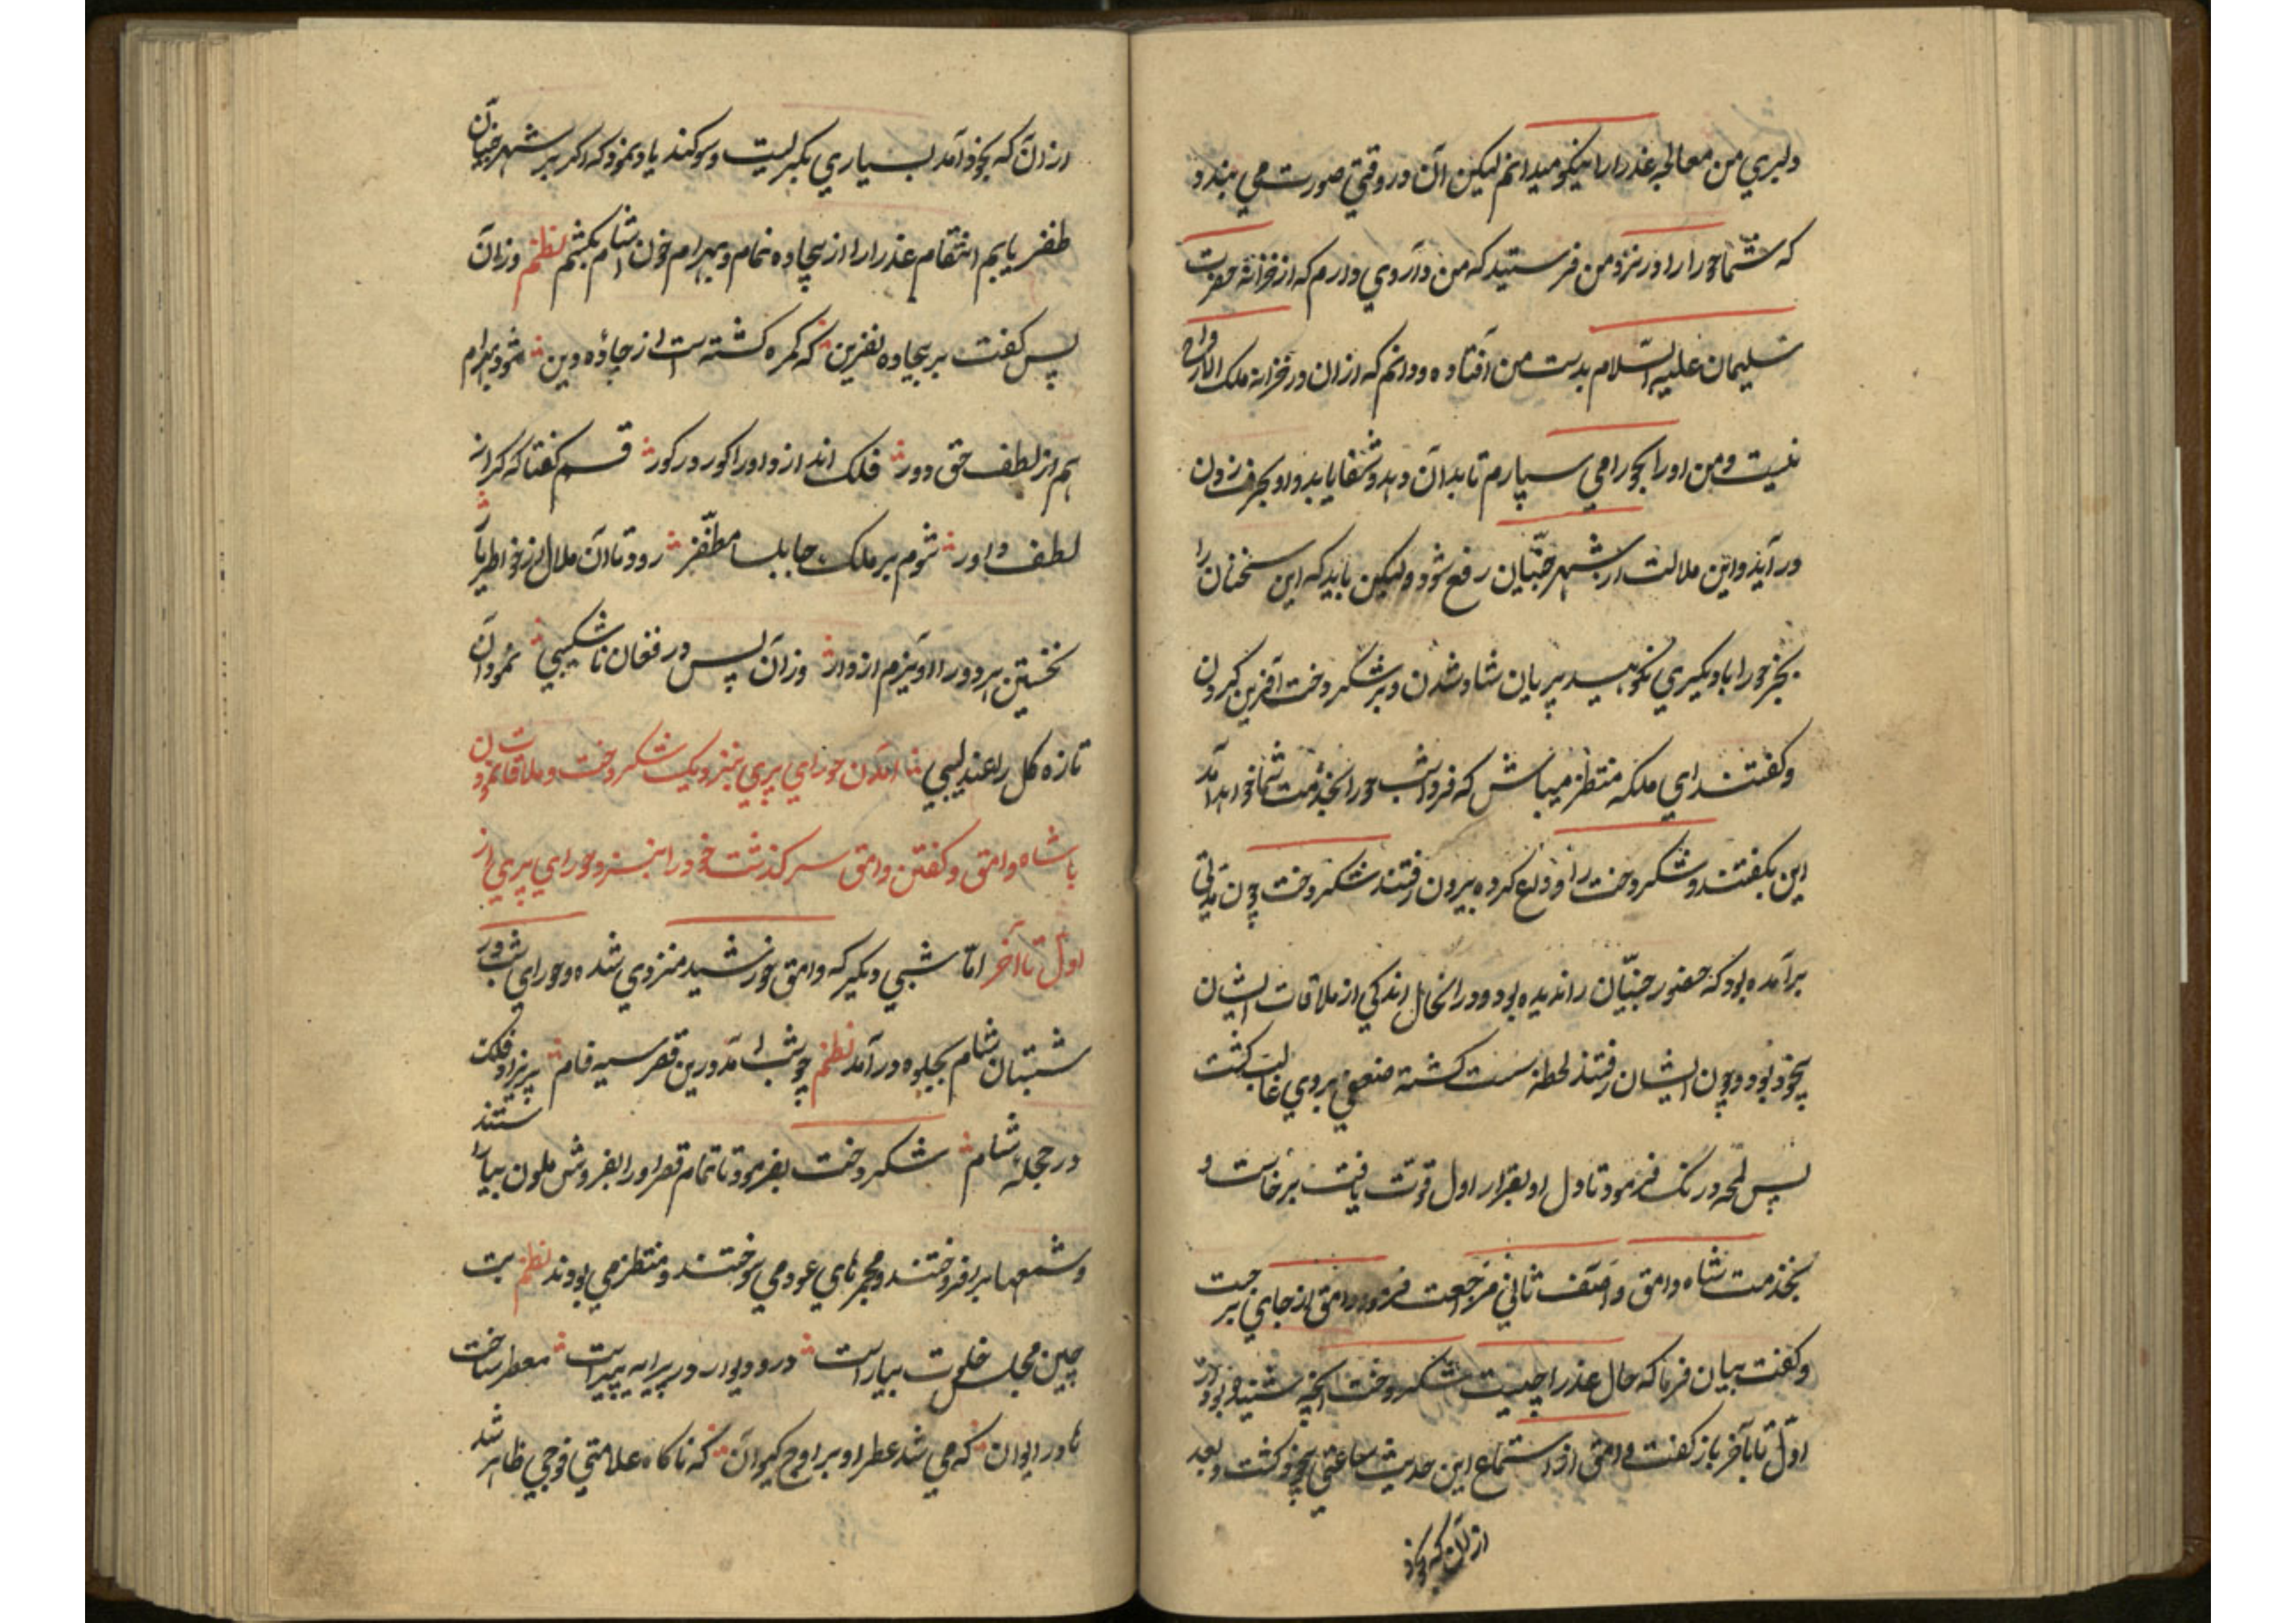 دلبري من معالجه عذرا را نیکو میدانم لیکن آن در وقتي صورت مي بندد
که شما حورا را در نزد من فرستید که من داروي دارم که از خزانه حضرت
سلیمان علیه السلام بدست من افتاده و دانم که از ان در خزانه ملک
نیست و من او را بحورا مي سپارم تا بدان دهد و شفا یابد و او بحرف زدن
در آید و این ملالت از شهر جنیان رفع شود و لیکن باید که این سخنان را
بجز حورا با دیکري نکوهید پریان شاد شدند و بر شکر دخت آفرین کردن
و کفتند اي ملکه منتظر میباش که فردا شب حورا بخدمت شما خواهد آمد
این بکفتند و شکر دخت را وداع کرده بیرون رفتند شکر دخت چون مدتي
برآمده بود که حضور جنیان را ندیده بود و در انحال اندکي از ملاقات ایشان
بیخود بود و چون ایشان رفتند لحظه سست کشته ضعفي بر وي غالب کشت
پس لمحه درنک فرمود تا دل او بقرار اول قوت یافت برخاست و
بخدمت شاه وامق و آصف ثاني مراجعت فرمود وامق از جاي بر جست
و کفت بیان فرما که حال عذرا چیست شکر دخت آنچه شنیده بود از
اول تا بآخر باز کفت وامق از استماع این حدیث ساعتي بیخود کشت و بعد
از آن که بخود
از آن که بخود آمد بسیاري بکریست و سوکند یاد نمود که اکر بر شهر جنیان
ظفر یابم انتقام عذرا را از بیجاده نمام و بهرام خون اشام بکشم نظم وزان
پس کفت بر بیجاده نفرین که کمره کشته است از جاده دین شود بهرام
هم از لطف حق دور فلک اندازد او را کور در کور قسم کفتا که کر از
لطف داور شوم بر ملک جابلسا مظفر رود تا آن ملال از خواطر یار
نخستین هر دو را اویزم از دار وزان پس در فغان ناشکیبي نمود آن
تازه کل را عندلیبي آمدن حوراي پري بنزدیک شکر دخت و ملاقات نمودن
با شاه وامق و کفتن وامق سرکذشت خود را بنزد حوراي پري از
اول تا آخر اما شبي دیکر که وامق خورشید منزوي شده و حوراي شب در
شبستان شام بجلوه در آمد نظم چو شب آمد درین قصر سیه فام پریزاد فلک
در حجله شام شکر دخت بفرمود تا تمام قصر او را بفروش ملون بیاراستند
و شمعها بر افروختند و مجمرهاي عود مي سوختند و منتظر مي بودند نظم بت
چین مجلس خلوت بیاراست در و دیوار در پیرایه پیراست معطر ساخت
در ایوان که مي شد عطر او بر اوج کیوان که ناکاه علامتي فوجي ظاهر شد